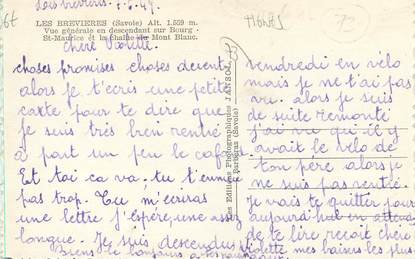 Les Brevieres, 7.6.49.
TIGNES
LES BREVIERES (Savoie) Alt. 1.559 m.
Vue générale en descendant sur Bourg-
St-Maurice et la chaîne du Mont Blanc.
chère Violette
choses promises choses devent
alors je t'ecris une petite
carte pour te dire que
je suis très bien rentré
a part un peu le cafard
Et tai ca va. tu t'ennuie
pas trop. Tu m'écriras
une lettre j'espère, une assez
longue. Je suis descendus
Les Editions Photographiques JANSOL
Barberaz (Savoie)
vendredi en vélo
mais je ne t'ai pas
vu. alors je suis
de suite remonté
j'ai vu qu'il y
avait le vélo de
ton père alors je
ne suis pas rentré.
Je vais te quitter pour
aujourd'hui en attendant
de te lire reçoit chère
Violette mes baises les plus